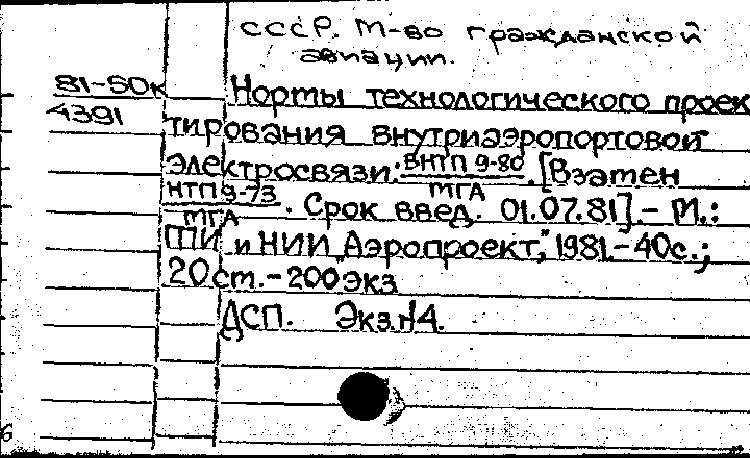 СССР. М-во гражданской
авиации.
81-50к Норты технологического проек
4391 тирования внутриаэропортовой
электросвязи: ВНТП 9-80/МГА. [Взатен
НТП 9-73/МГА. Срок введ. 01.07.81]. - М.:
ГПИ и НИИ „Аэропроект", 1981. - 40с.;
20 ст. - 200 экз
ДСП. Экз. №4.
6